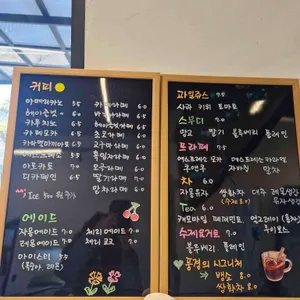 커피
아메리카노 5.5
카페라떼 6.0
헤이즐넛 6.0
바닐라라떼
카푸치노
헤이즌넛라떼 6.5
카페모카
초코라떼 6.0
카라멜마끼아또
고구마라떼
에스프레소
흑임자라떼
아포카토 7.0
딸기라떼
디카페인
말차라떼
Ice 500원 추가
에이드
자몽에이드 7.0
체리에이드 7.0
레몬에이드
체리코크
아이스티 5.5
(복숭아, 레몬)
과일쥬스 7.5
사과 키위 토마토
스무디 7.0
망고 딸기 블루베리 플레인
프라페
차 6.0
자몽유자 쌍화차 대추 레몬생강
Tea 6.0
캐모마일 페퍼민트 얼그레이
루이보스
수제요거트 7.0
블루베리 플레인
풍경의 시그니처
뱅쇼 8.0
쌍화차 8.0